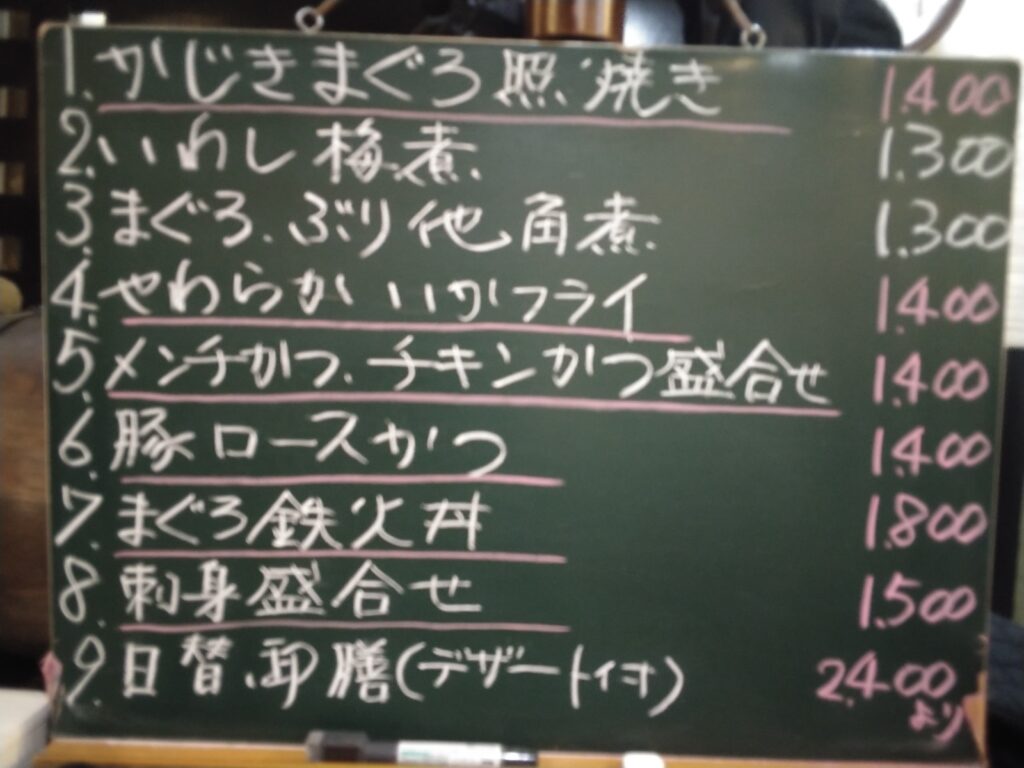 1. かじきまぐろ照焼き 1.400
2. いわし梅煮 1.300
3. まぐろ、ぶり他角煮 1.300
4. やわらかいかフライ 1.400
5. メンチかつ、チキンかつ盛合せ 1.400
6. 豚ロースかつ 1.400
7. まぐろ鉄火丼 1.800
8. 刺身盛合せ 1.500
9. 日替御膳(デザート付) 2.400
より